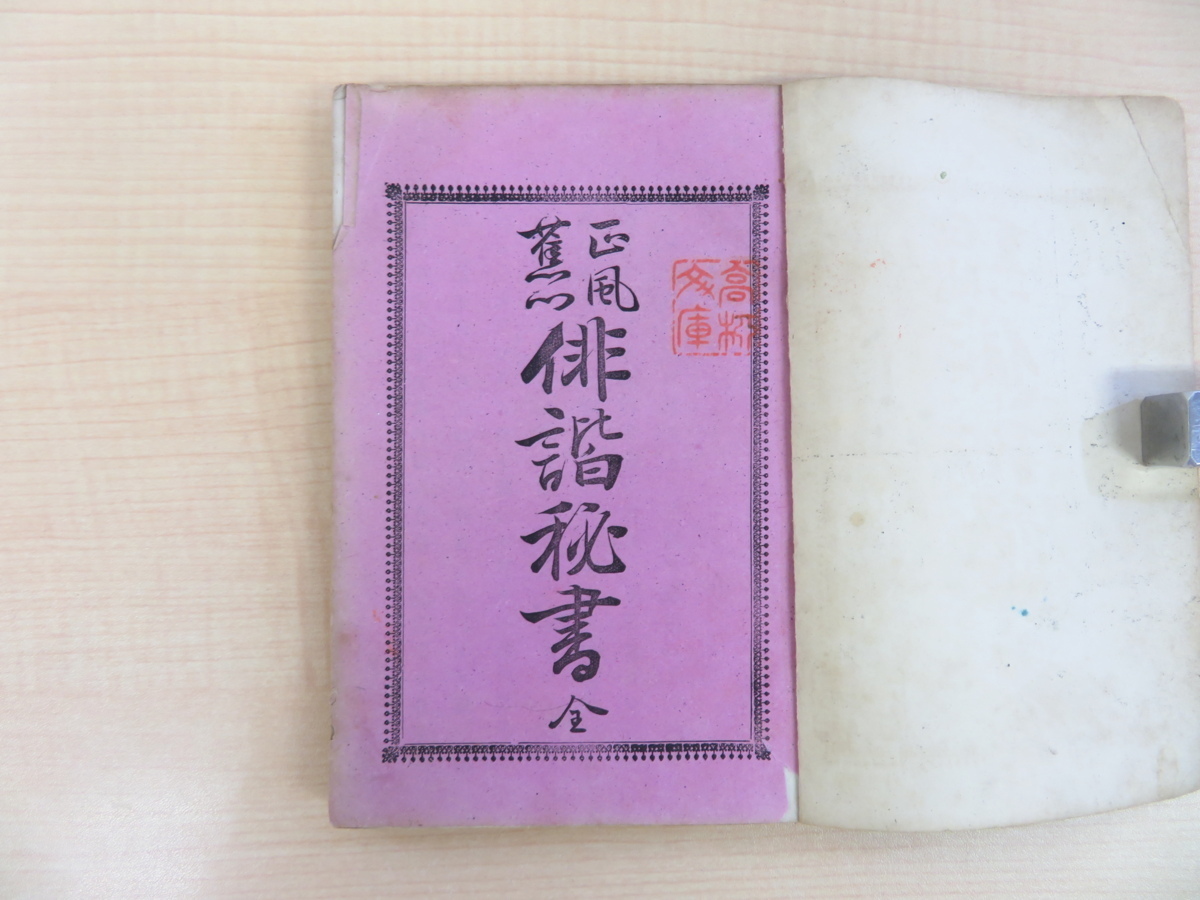 正風
蕉門
俳諧秘書 全
文庫